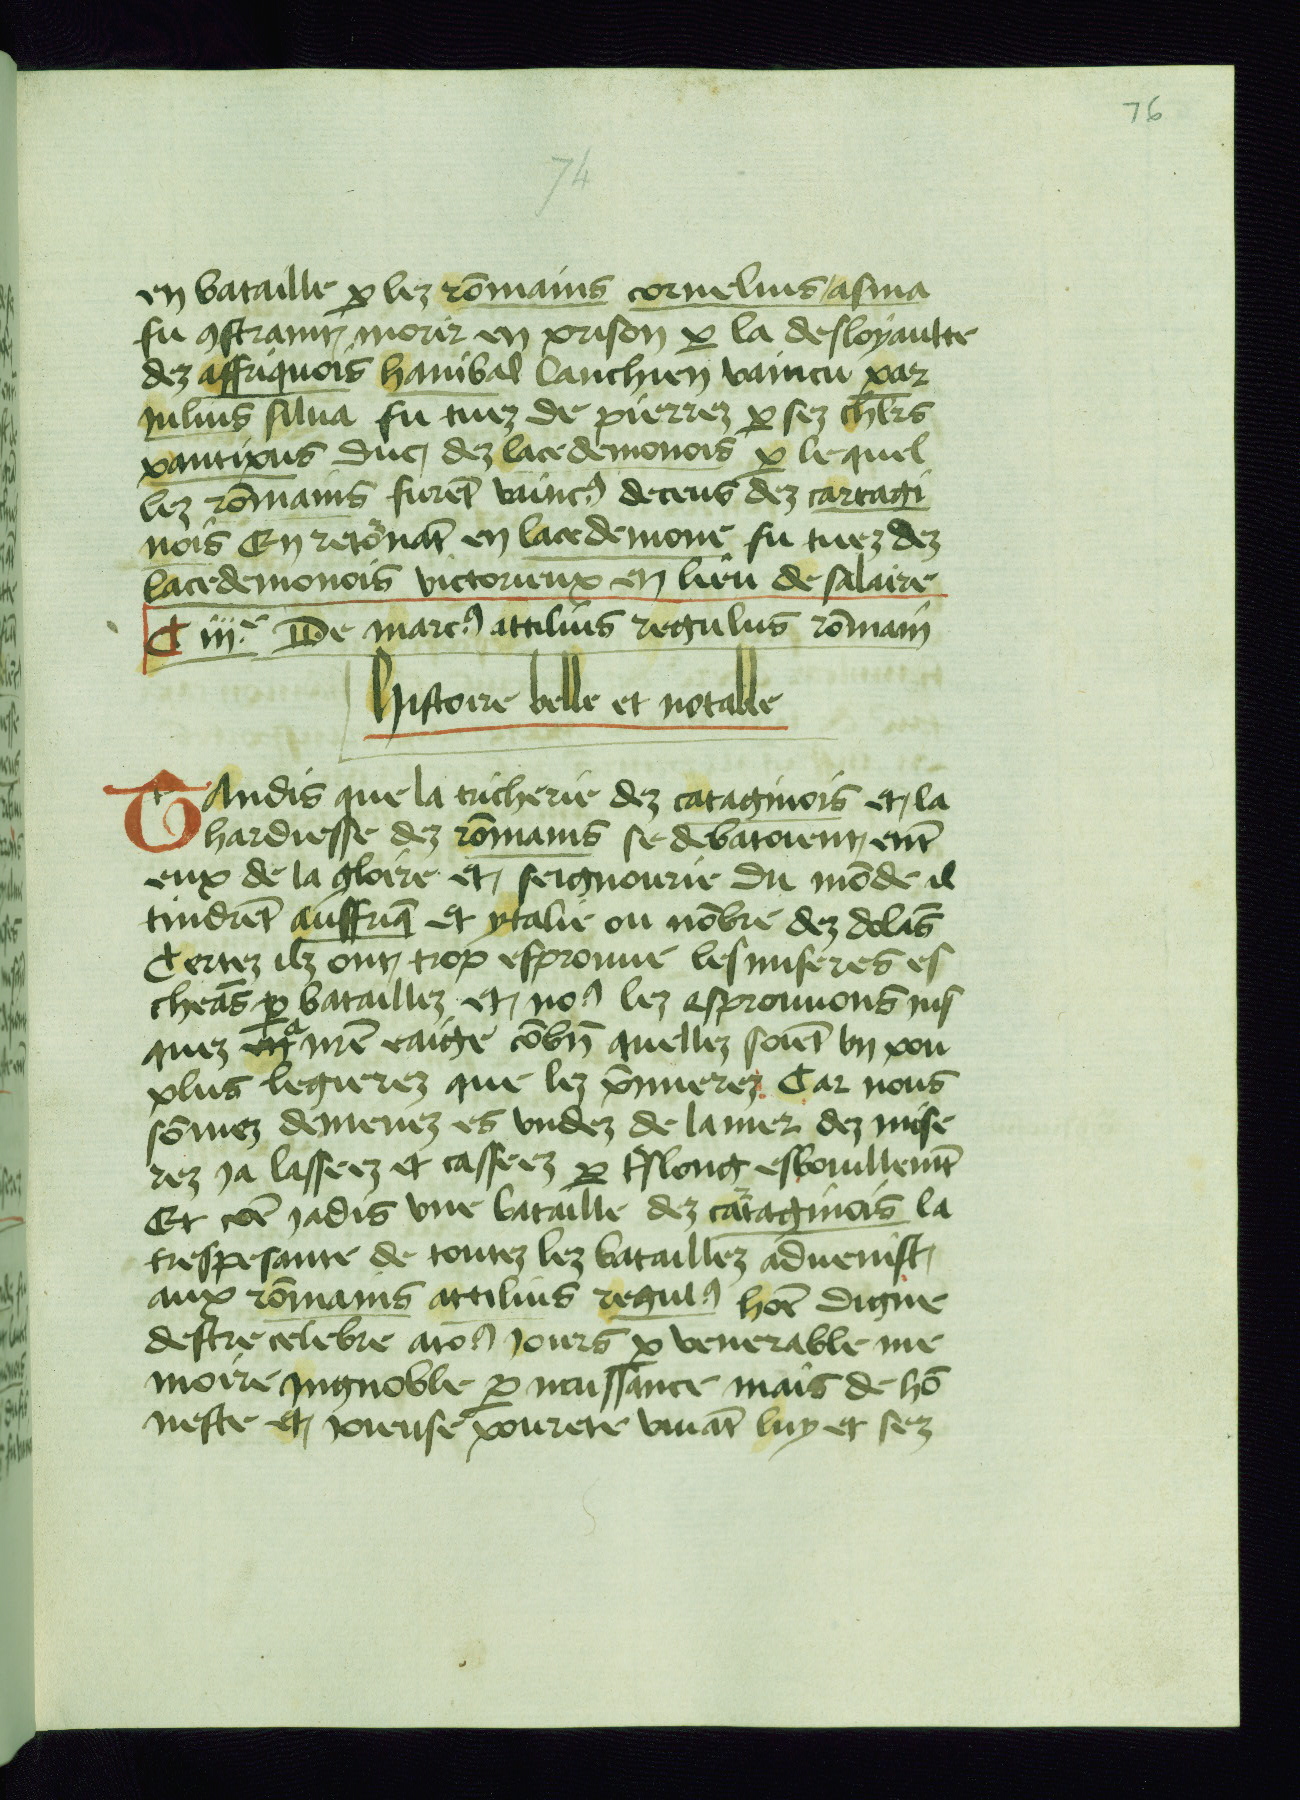 76
74
en bataille ꝑ lez rōmains cornelius / asina
fu ꝯstraint morir en prison ꝑ la desloyaultte
dez affriquois hanibal lanchien vaincu par
iulius silua fu tuez de pierrez ꝑ sez chl̄rs
xantipus duc dez lacedemonois ꝑ lequel
lez rōmains furēt vaincꝰ deceus dez cartagi
nois En retōrnāt en lacedemone fu tuez dez
lacedemonois victorieux en lieu de salaire
C iij.e De marcꝰ attilius regulus rōmain
histoire belle et notable
TAndis que la tricherie dez cataginois et la
hardiesse dez rōmains se debatoient ent̄
eux de la gloire et seignourie du mōde il
tindrēt auffriq̄ et ytalie ou nōbre dez dolās
Certez ilz ont trop esprouue les miseres es
cheās ꝑ bataillez et noꝰ lez esprouuons ius
quez a nr̄e eaige cōbn̄ quellez soiēt vn pou
plus legierez que lez p̄mierez Car nous
sōmez demenez es vndez de la mer dez mise
rez ia lasseez et casseez ꝑ t̄slong esboullemt̄
Et cōe jadis vne bataille dez cartaginois la
trespesante de toutez lez bataillez aduenist
aux rōmains attilius regulꝰ hōe digne
destre celebre atoꝰ jours ꝑ venerable me
moire jngnoble ꝑ ncussance mais de hō
neste et joieuse pourete viuāt luy et sez